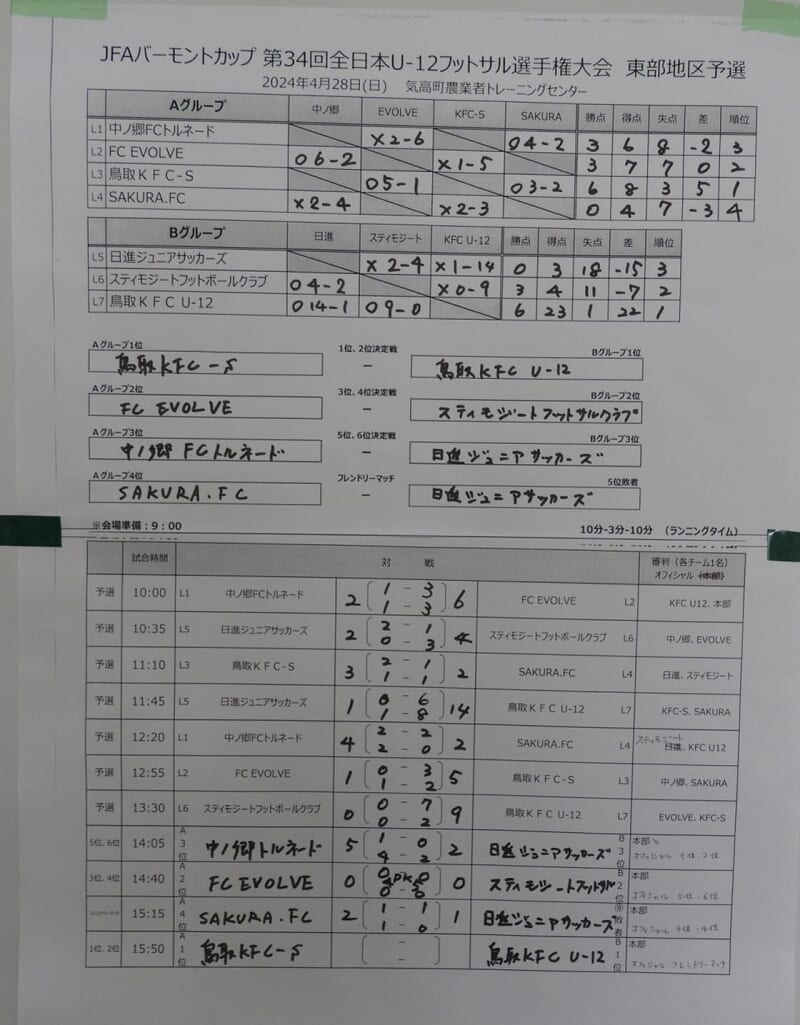 JFAバーモントカップ 第34回全日本U-12フットサル選手権大会 東部地区予選
2024年4月28日(日) 気高町農業者トレーニングセンター
Aグループ 中ノ郷 EVOLVE KFC-S SAKURA 勝点 得点 失点 差 順位
L1 中ノ郷FCトルネード ×2-6 ○4-2 3 6 8 -2 3
L2 FC EVOLVE ○6-2 ×1-5 3 7 7 0 2
L3 鳥取KFC-S ○5-1 ○3-2 6 8 3 5 1
L4 SAKURA.FC ×2-4 ×2-3 0 4 7 -3 4
Bグループ 日進 スティモジート KFC U-12 勝点 得点 失点 差 順位
L5 日進ジュニアサッカーズ ×2-4 ×1-14 0 3 18 -15 3
L6 スティモジートフットボールクラブ ○4-2 ×0-9 3 4 11 -7 2
L7 鳥取KFC U-12 ○14-1 ○9-0 6 23 1 22 1
Aグループ1位 1位、2位決定戦 Bグループ1位
鳥取KFC-S - 鳥取KFC U-12
Aグループ2位 3位、4位決定戦 Bグループ2位
FC EVOLVE - スティモジートフットサルクラブ
Aグループ3位 5位、6位決定戦 Bグループ3位
中ノ郷FCトルネード - 日進ジュニアサッカーズ
Aグループ4位 フレンドリーマッチ 5位敗者
SAKURA.FC - 日進ジュニアサッカーズ
※会場準備：9：00 10分-3分-10分 （ランニングタイム）
試合時間 対 戦 審判（各チーム1名）
オフィシャル（本部）
予選 10:00 L1 中ノ郷FCトルネード 2 1 - 3 1 - 3 6 FC EVOLVE L2 KFC U12、本部
予選 10:35 L5 日進ジュニアサッカーズ 2 2 - 1 0 - 3 4 スティモジートフットボールクラブ L6 中ノ郷、EVOLVE
予選 11:10 L3 鳥取KFC-S 3 2 - 1 1 - 1 2 SAKURA.FC L4 日進、スティモジート
予選 11:45 L5 日進ジュニアサッカーズ 1 0 - 6 1 - 8 14 鳥取KFC U-12 L7 KFC-S、SAKURA
予選 12:20 L1 中ノ郷FCトルネード 4 2 - 2 2 - 0 2 SAKURA.FC L4 スティモジート 日進、KFC U12
予選 12:55 L2 FC EVOLVE 1 0 - 3 1 - 2 5 鳥取KFC-S L3 中ノ郷、SAKURA
予選 13:30 L6 スティモジートフットボールクラブ 0 0 - 7 0 - 2 9 鳥取KFC U-12 L7 EVOLVE、KFC-S
5位、6位 14:05 A3位 中ノ郷トルネード 5 1 - 0 4 - 2 2 日進ジュニアサッカーズ B3位 本部 オフィシャル 1位、2位
3位、4位 14:40 A2位 FC EVOLVE 0 PK 0 スティモジートフットサル B2位 本部 オフィシャル 5位・6位
フレンドリーマッチ 15:15 A4位 SAKURA.FC 2 1 - 1 1 - 0 1 日進ジュニアサッカーズ ⑨敗者 本部 オフィシャル 3位・4位
1位、2位 15:50 A1位 鳥取KFC-S - - 鳥取KFC U-12 B1位 本部 オフィシャル フレンドリーマッチ